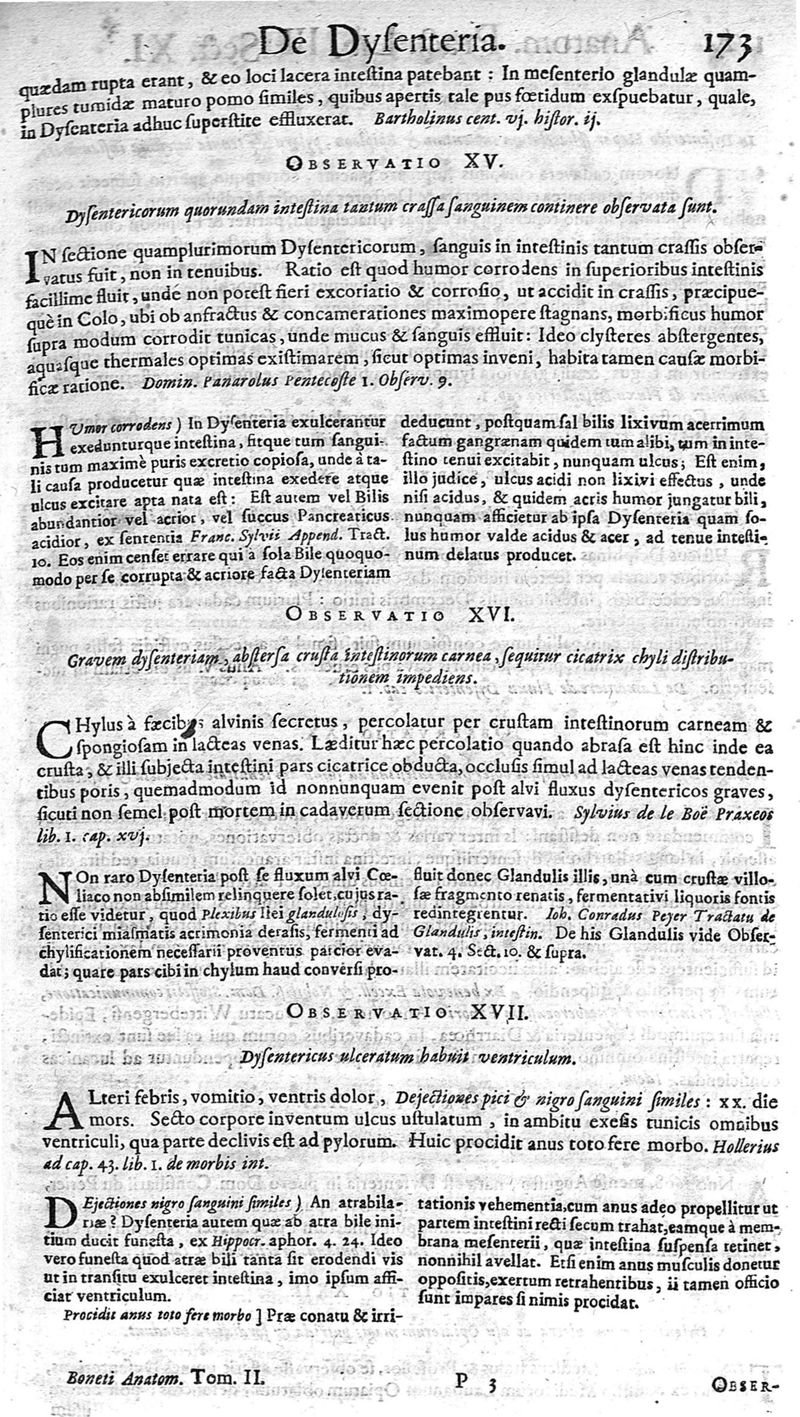 De Dyſenteria. 173
quædam rupta erant, & eo loci lacera inteſtina patebant : In meſenterio glandulæ quam-
plures tumidæ maturo pomo ſimiles, quibus apertis tale pus fœtidum exſpuebatur, quale,
in Dyſenteria adhuc ſuperſtite effluxerat. Bartholinus cent. vj. hiſtor. ij.
OBSERVATIO XV.
Dyſentericorum quorundam inteſtina tantum craſſa ſanguinem continere obſervata ſunt.
IN ſectione quamplurimorum Dyſentericorum, ſanguis in inteſtinis tantum craſſis obſer-
vatus fuit, non in tenuibus. Ratio eſt quod humor corrodens in ſuperioribus inteſtinis
facillime fluit, unde non poteſt fieri excoriatio & corroſio, ut accidit in craſſis, præcipue-
què in Colo, ubi ob anfractus & concamerationes maximopere ſtagnans, morbificus humor
ſupra modum corrodit tunicas, unde mucus & ſanguis effluit: Ideo clyſteres abſtergentes,
aquaſque thermales optimas exiſtimarem, ſicut optimas inveni, habita tamen cauſæ morbi-
ficæ ratione. Domin. Panarolus Pentecoſte 1. Obſerv. 9.
HUmor corrodens ) In Dyſenteria exulcerantur
exedunturque inteſtina, fitque tum ſangui-
nis tum maximè puris excretio copioſa, unde à ta-
li cauſa producetur quæ inteſtina exedere atque
ulcus excitare apta nata eſt : Eſt autem vel Bilis
abundantior vel acrior, vel ſuccus Pancreaticus
acidior, ex ſententia Franc. Sylvii Append. Tract.
10. Eos enim cenſet errare qui à ſola Bile quoquo-
modo per ſe corrupta & acriore facta Dyſenteriam
deducunt, poſtquam ſal bilis lixivum acerrimum
factum gangrænam quidem tum alibi, tum in inte-
ſtino tenui excitabit, nunquam ulcus; Eſt enim,
illo judice, ulcus acidi non lixivi effectus, unde
niſi acidus, & quidem acris humor jungatur bili,
nunquam afficietur ab ipſa Dyſenteria quam ſo-
lus humor valde acidus & acer, ad tenue inteſti-
num delatus producet.
OBSERVATIO XVI.
Gravem dyſenteriam, abſterſa cruſta inteſtinorum carnea, ſequitur cicatrix chyli diſtribu-
tionem impediens.
CHylus à fæcibus alvinis ſecretus, percolatur per cruſtam inteſtinorum carneam &
ſpongioſam in lacteas venas. Læditur hæc percolatio quando abraſa eſt hinc inde ea
cruſta, & illi ſubjecta inteſtini pars cicatrice obducta, occluſis ſimul ad lacteas venas tenden-
tibus poris, quemadmodum id nonnunquam evenit poſt alvi fluxus dyſentericos graves,
ſicuti non ſemel poſt mortem in cadaverum ſectione obſervavi. Sylvius de le Boë Praxeos
lib. 1. cap. xvj.
NOn raro Dyſenteria poſt ſe fluxum alvi Cœ-
liaco non abſimilem relinquere ſolet, cujus ra-
tio eſſe videtur, quod Plexibus Ilei glanduloſis, dy-
ſenterici miaſmatis acrimonia deraſis, fermenti ad
chylificationem neceſſarii proventus parcior eva-
dat; quare pars cibi in chylum haud converſi pro-
fluit donec Glandulis illis, unà cum cruſtæ villo-
ſæ fragmento renatis, fermentativi liquoris fontis
redintegrentur. Ioh. Conradus Peyer Tractatu de
Glandulis, inteſtin. De his Glandulis vide Obſer-
vat. 4. Sect. 10. & ſupra.
OBSERVATIO XVII.
Dyſentericus ulceratum habuit ventriculum.
ALteri febris, vomitio, ventris dolor, Dejectiones pici & nigro ſanguini ſimiles : xx. die
mors. Secto corpore inventum ulcus uſtulatum, in ambitu exeſis tunicis omnibus
ventriculi, qua parte declivis eſt ad pylorum. Huic procidit anus toto fere morbo. Hollerius
ad cap. 43. lib. 1. de morbis int.
DEjectiones nigro ſanguini ſimiles ) An atrabila-
riæ? Dyſenteria autem quæ ab atra bile ini-
tium ducit funeſta, ex Hippocr. aphor. 4. 24. Ideo
vero funeſta quod atræ bili tanta ſit erodendi vis
ut in tranſitu exulceret inteſtina, imo ipſum affi-
ciat ventriculum.
Procidit anus toto fere morbo ] Præ conatu & irri-
tationis vehementia, cum anus adeo propellitur ut
partem inteſtini recti ſecum trahat, eamque à mem-
brana meſenterii, quæ inteſtina ſuſpenſa retinet,
nonnihil avellat. Etſi enim anus muſculis donetur
oppoſitis, exertum retrahentibus, ii tamen officio
ſunt impares ſi nimis procidat.
Boneti Anatom. Tom. II. P 3 OBSER-